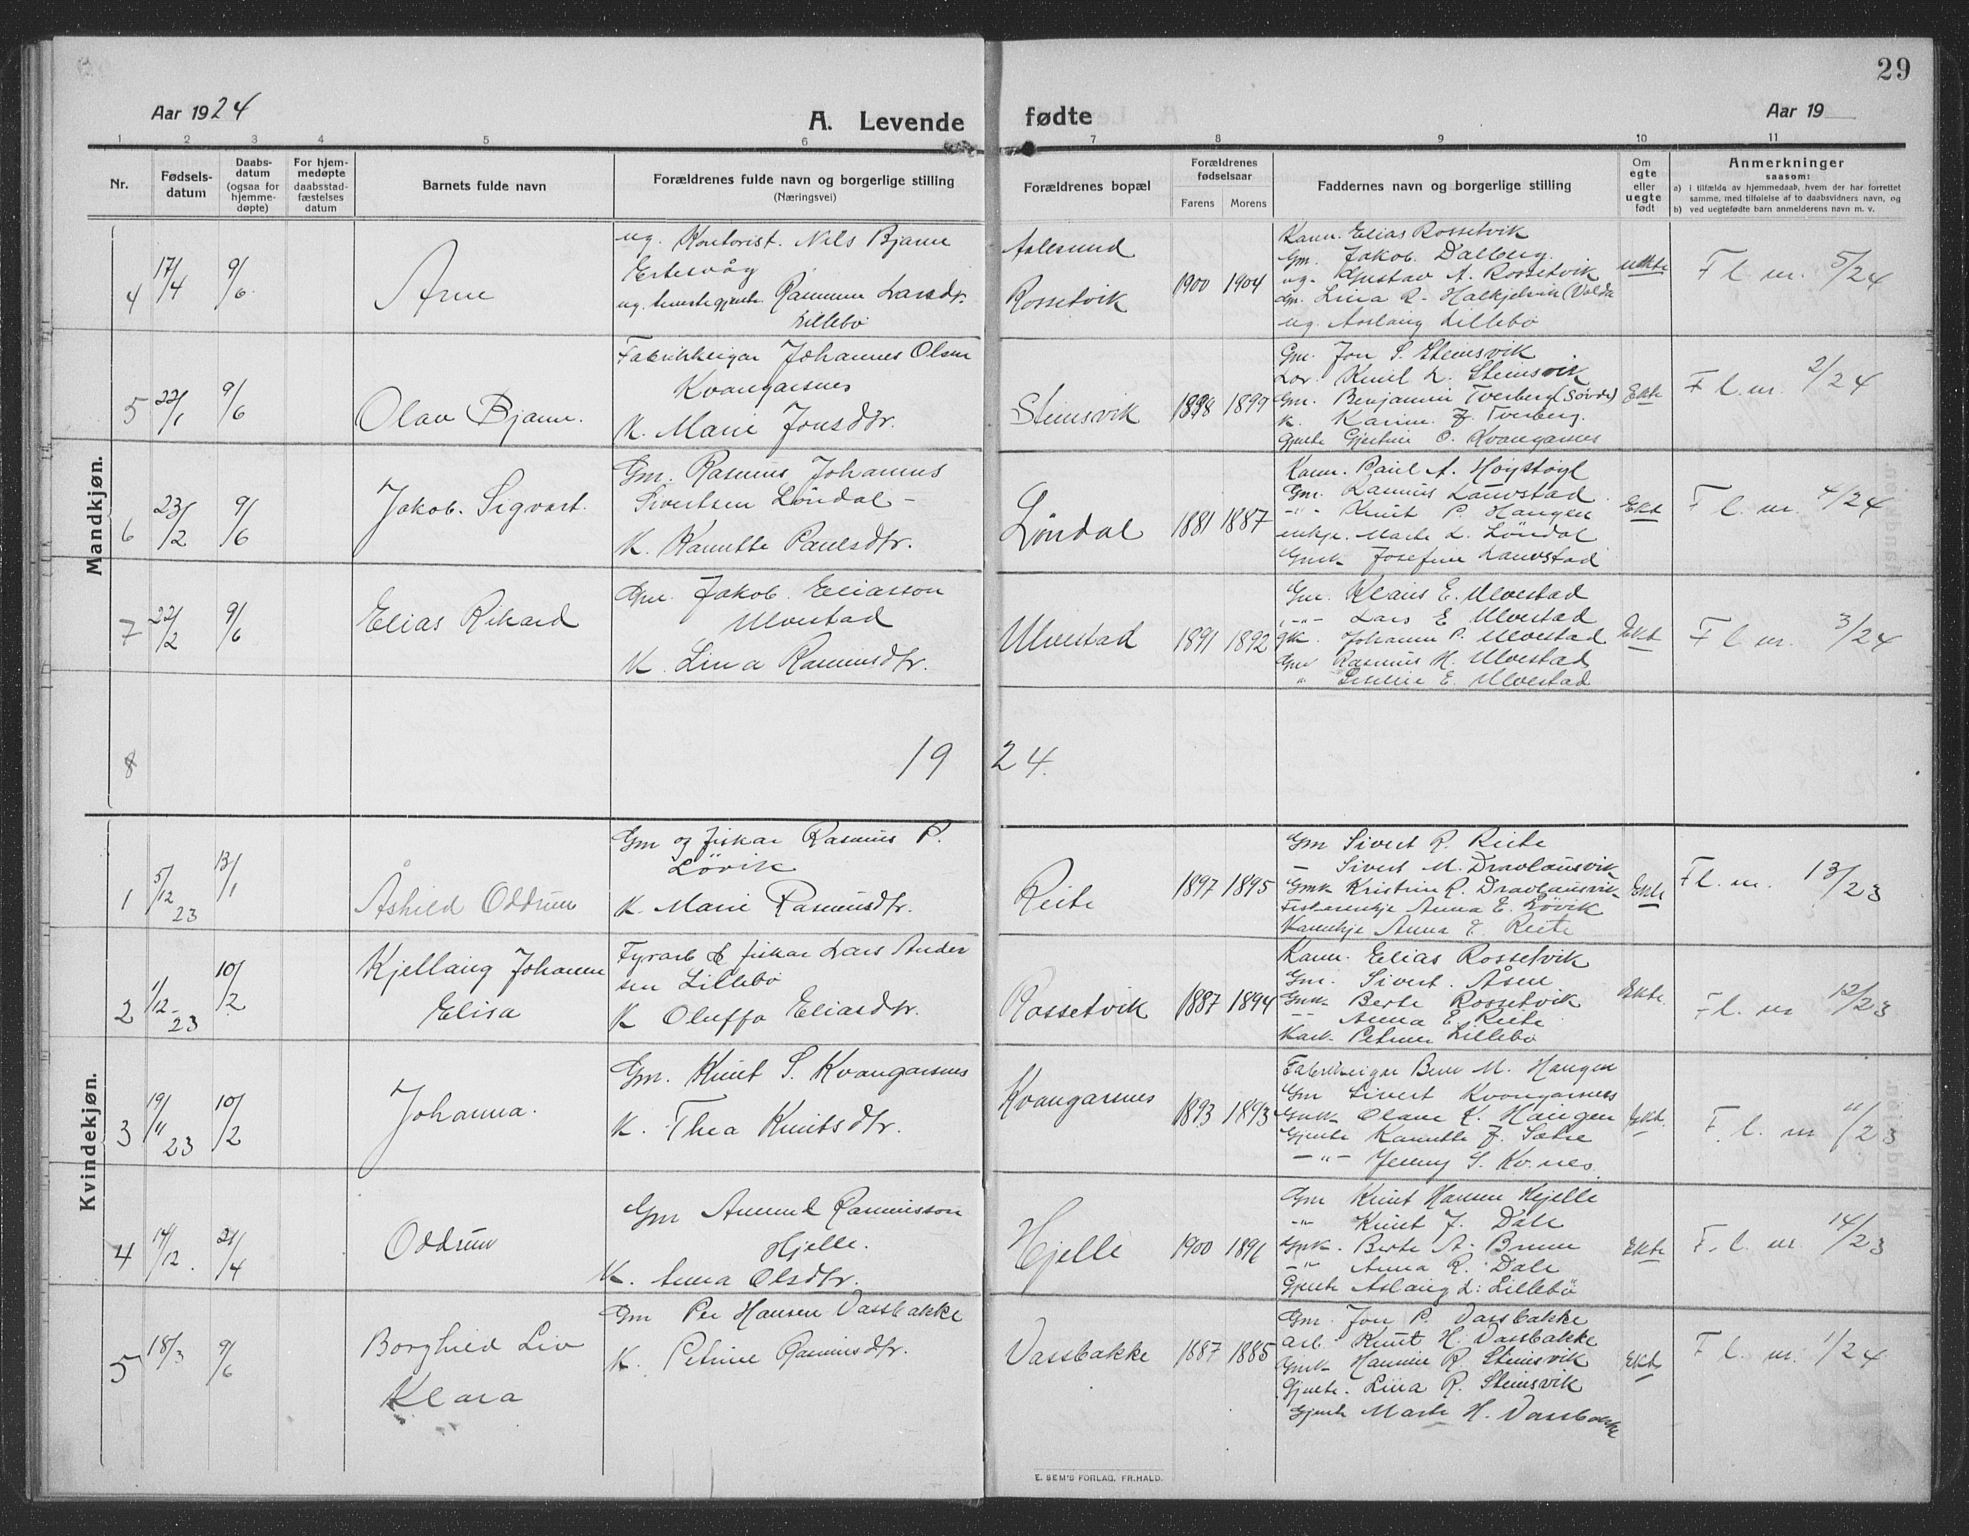 29
Aar 1924
A. Levende fødte
Aar 19
1 2 3 4 5 6 7 8 9 10 11
Nr.
Fødsels-
datum
Daabs-
datum
(ogsaa for
hjemme-
døpte)
For hjem-
medøpte
daabsstad-
fæstelses
datum
Barnets fulde navn
Forældrenes fulde navn og borgerlige stilling
(Næringsvei)
Forældrenes bopæl
Forældrenes
fødselsaar
Farens Morens
Faddernes navn og borgerlige stilling
Om
egte
eller
uegte
født
Anmerkninger
saasom:
a) i tilfælda av hjemmedaab, hvem der har forrettet
samme, med tilføielse af to daabsvidners navn, og
b) ved uegtefødte barn anmelderens navn m. v.
Mandkjøn.
4 17/4 9/6 Arne
ug. Kontorist. Nils Bjarne
Ertesvåg
ug. Rasmine Larsdtr.
Lillebø
Aalesund
Rossetvik
1900 1904
Kaarm. Elias Rossetvik
Gm. Jakob Dalberg.
ug. Gustav A. Rossetvik
Gm. Lina R. Halkjelsvik (Volda
ug. Aaslaug Lillebø
uekte
Fl. m. 5/24
5 22/1 9/6 Olav Bjarne.
Fabrikkeigar Johannes Olsen
Kvangarsnes
K. Marie Jonsdtr.
Steinsvik
1898 1899
Gm. Jon S. Steinsvik
Lær. Knut L. Steinsvik
Gm. Benjamin Tverberg (Søvde)
K. Karine J. Tverberg.
Gjente Gjertine O. Kvangarsnes
Ekte
Fl. m 2/24
6 23/2 9/6 Jakob. Sigvart.
Gm. Rasmus Johannes
Sivertsen Løndal -
K. Kanutte Paulsdtr.
Løndal
1881 1887
Kaarm. Paul A. Høystøyl
Gm. Rasmus Lauvstad
-"- Knut P. Haugen
enkje. Marte L. Løndal
Gmk Josefine Lauvstad
Ekt
Fl. m. 4/24
7 22/2 9/6 Elias Rikard
Gm. Jakob. Eliasson
Ulvestad
K. Lina Rasmusdtr.
Ulvestad
1891 1892
Gm. Klaus E. Ulvestad
-"- Lars E. Ulvestad
gk. Johanne P. Ulvestad
Gm Rasmus H. Ulvestad
" E. Ulvestad
Ekt
Fl. m. 3/24
8
1924.
Kvindekjøn.
1 5/12 23 13/1 Åshild Oddrun
Gm og fiskar Rasmus P.
Løvik
K. Marie Rasmusdtr.
Reite
1897 1895
Gm Sivert R. Reite
- Sivert M. Dravlausvik
Gmk Kristine R. Dravlausvik
Fiskarenkje Anna E. Løvik
Kaarenkje Anna E. Reite
Ekte
Fl. m. 13/23
2 1/12 23 10/2 Kjellaug Johanne
Elisa
Fyrarb & fiskar Lars Ander
sen Lillebø
K Oluffa Eliasdtr.
Rossetvik
1887 1894
Kaarm. Elias Rossetvik
Gm. Sivert. Åsen
Gmk Berte Rossetvik
-"- Anna E. Reite
Kark Petrine Lillebø
Ekte.
Fl. m 12/23
3 19/11 23 10/2 Johanna.
Gm. Knut S. Kvangarsnes
K. Thea Knutsdtr.
Kvangarsnes
1893 1893
Fabrikkeigar Bern M. Haugen
Gm Sivert Kvangarsnes
Gmk Olave K. Haugen
Gjente Kanutte J. Sætre
-"- Jenny S. Kv.nes.
Ekt.
F. l. m 11/23
4 14/12. 21/4 Oddrun
Gm Amund Rasmusson
Hjelle.
K. Anna Olsdtr.
Hjelle
1900 1896
Gm Knut Hansen Hjelle
"- Knut J. Dale
Gmk. Berte A. Brune
-"- Anna R. Dale
Gjente Aslaug L: Lillebø
Ekte
F. l. m 14/23
5 18/3 9/6 Borghild Liv
Klara
Gm Per Hansen Vassbakke
K. Petrine Rasmusdtr.
Vassbakke
1887 1885
Gm. Jon P. Vassbakke
arb. Knut H. Vassbakke
Gmk Hannine R. Steinsvik
Gjente. Lina R. Steinsvik
Gjente Marte H. Vassbakke
Ekt
Fl. m. 1/24
E. SEM'S FORLAG, FR.HALD.